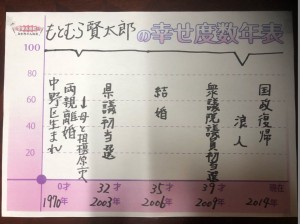 もとむら賢太郎の幸せ度数年表
100
80
60
40
20
中野区生まれ
両親離婚
↓母と相模原市へ
県議初当選
結婚
衆議院議員初当選
浪人
国政復帰
0才 32才 35才 39才 現在
1970年 2003年 2006年 2009年 2019年